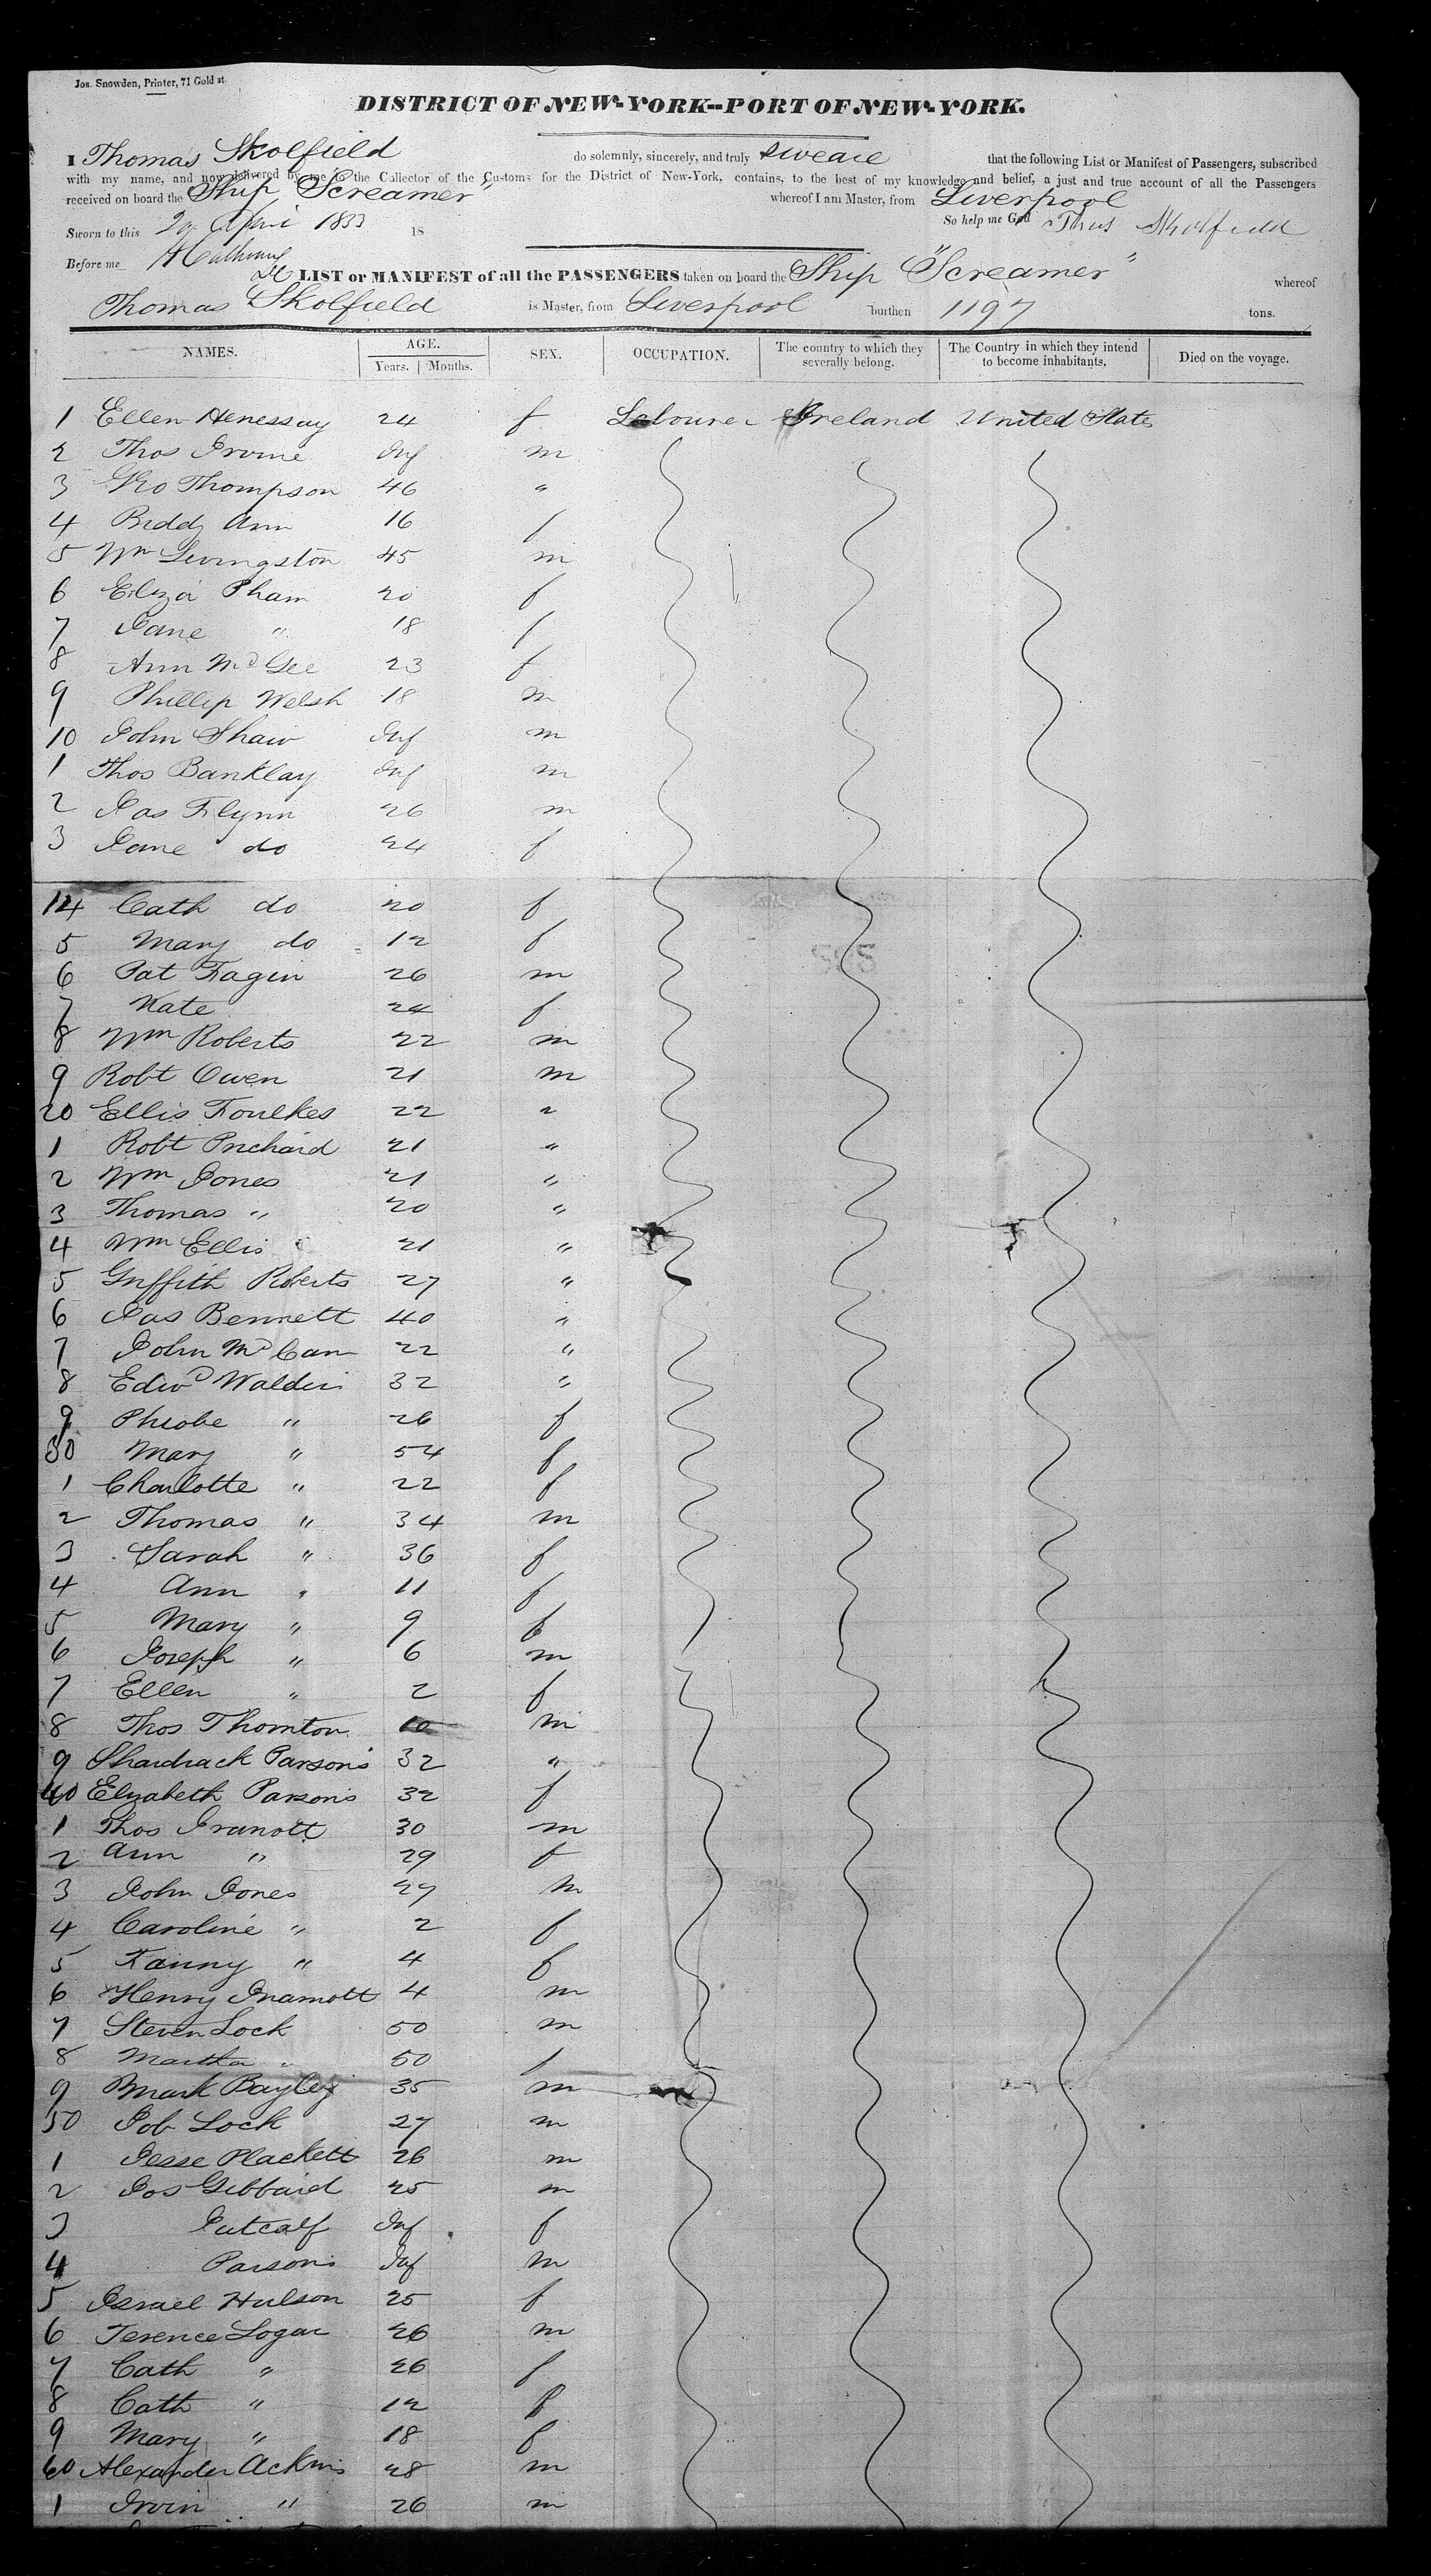 Jos. Snowden, Printer, 71 Gold st.
DISTRICT OF NEW-YORK--PORT OF NEW-YORK.
I Thomas Skolfield do solemnly, sincerely, and truly sweare that the following List or Manifest of Passengers, subscribed
with my name, and now delivered by me to the Collector of the Customs for the District of New-York, contains, to the best of my knowledge and belief, a just and true account of all the Passengers
received on board the Ship "Screamer" whereof I am Master, from Liverpool
Sworn to this April 1853 18 So help me God Thos Skolfield
Before me
LIST or MANIFEST of all the PASSENGERS taken on board the Ship "Screamer" whereof
Thomas Skolfield is Master, from Liverpool burthen 1197 tons.
NAMES. AGE. SEX. OCCUPATION. The country to which they severally belong. The Country in which they intend to become inhabitants. Died on the voyage.
Years. Months.
1 Ellen Henessay 24 f Labourer Ireland United States
2 Thos Irvine Inf m
3 Geo Thompson 46 "
4 Biddy Ann 16 f
5 Wm Livingston 45 m
6 Eliza Pham 20 f
7 Jane " 18 f
8 Ann McGee 23 f
9 Phillip Welsh 18 m
10 John Shaw Inf m
1 Thos Banklay Inf m
2 Jas Flynn 26 m
3 Jane do 24 f
14 Cath do 20 f
5 Mary do 12 f
6 Pat Fagin 26 m
7 Kate 24 f
8 Wm Roberts 22 m
9 Robt Owen 21 m
20 Ellis Foulkes 22 "
1 Robt Prichard 21 "
2 Wm Jones 21 "
3 Thomas " 20 "
4 Wm Ellis 21 "
5 Griffith Roberts 27 "
6 Jas Bennett 40 "
7 John McCan 22 "
8 Edwd Waldin 32 "
9 Pheobe " 26 f
30 Mary " 54 f
1 Charlotte " 22 f
2 Thomas " 34 m
3 Sarah " 36 f
4 Ann " 11 f
5 Mary " 9 f
6 Joseph " 6 m
7 Ellen " 2 f
8 Thos Thornton 10 m
9 Shardrack Parsons 32 "
40 Elizabeth Parsons 32 f
1 Thos 30 m
2 Ann " 29 f
3 John Jones 27 m
4 Caroline " 2 f
5 Fanny " 4 f
6 Henry 4 m
7 Steven Lock 50 m
8 Martha " 50 f
9 Mark Bayley 35 m
50 Job Lock 27 m
1 Jesse Plackett 26 m
2 Jos Gibbard 25 m
3 Inf f
4 Parsons Inf m
5 Israel Hulson 25 f
6 Terence Logan 26 m
7 Cath " 26 f
8 Cath " 12 f
9 Mary " 18 f
60 Alexander Ackins 28 m
1 Irvin " 26 m